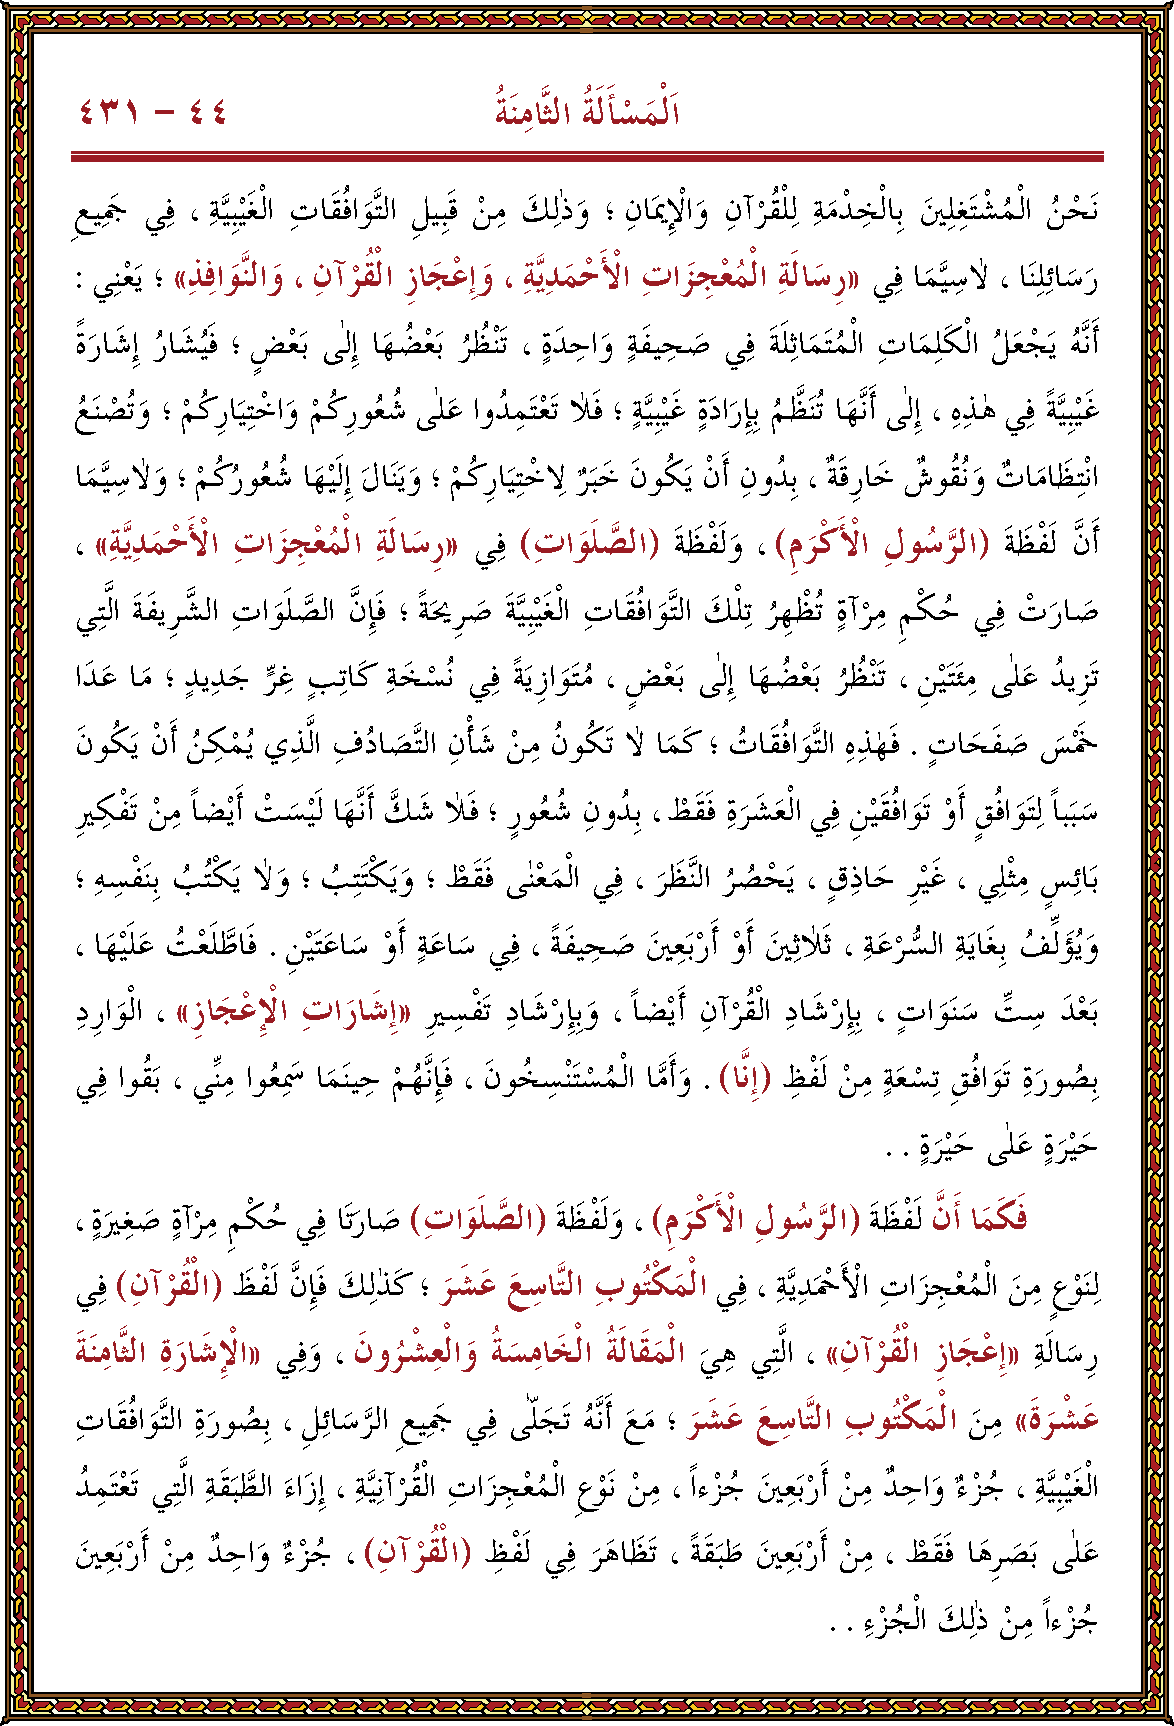 اَلْمَسْأَلَةُ الثَّامِنَةُ ٤٤ - ٤٣١
نَحْنُ الْمُشْتَغِلِينَ بِالْخِدْمَةِ لِلْقُرْآنِ وَالْإِيمَانِ ؛ وَذٰلِكَ مِنْ قَبِيلِ التَّوَافُقَاتِ الْغَيْبِيَّةِ ، فِي جَمِيعِ
رَسَائِلِنَا ، لَاسِيَّمَا فِي «رِسَالَةِ الْمُعْجِزَاتِ الْأَحْمَدِيَّةِ ، وَإِعْجَازِ الْقُرْآنِ ، وَالنَّوَافِذِ» ؛ يَعْنِي :
أَنَّهُ يَجْعَلُ الْكَلِمَاتِ الْمُتَمَاثِلَةَ فِي صَحِيفَةٍ وَاحِدَةٍ ، تَنْظُرُ بَعْضُهَا إِلٰى بَعْضٍ ؛ فَيُشَارُ إِشَارَةً
غَيْبِيَّةً فِي هٰذِهِ ، إِلٰى أَنَّهَا تُنَظَّمُ بِإِرَادَةٍ غَيْبِيَّةٍ ؛ فَلَا تَعْتَمِدُوا عَلٰى شُعُورِكُمْ وَاخْتِيَارِكُمْ ؛ وَتُصْنَعُ
انْتِظَامَاتٌ وَنُقُوشٌ خَارِقَةٌ ، بِدُونِ أَنْ يَكُونَ خَبَرٌ لِاخْتِيَارِكُمْ ؛ وَيَنَالَ إِلَيْهَا شُعُورُكُمْ ؛ وَلَاسِيَّمَا
أَنَّ لَفْظَةَ (الرَّسُولِ الْأَكْرَمِ) ، وَلَفْظَةَ (الصَّلَوَاتِ) فِي «رِسَالَةِ الْمُعْجِزَاتِ الْأَحْمَدِيَّةِ» ،
صَارَتْ فِي حُكْمِ مِرْآةٍ تُظْهِرُ تِلْكَ التَّوَافُقَاتِ الْغَيْبِيَّةَ صَرِيحَةً ؛ فَإِنَّ الصَّلَوَاتِ الشَّرِيفَةَ الَّتِي
تَزِيدُ عَلٰى مِئَتَيْنِ ، تَنْظُرُ بَعْضُهَا إِلٰى بَعْضٍ ، مُتَوَازِيَةً فِي نُسْخَةِ كَاتِبٍ غِرٍّ جَدِيدٍ ؛ مَا عَدَا
خَمْسَ صَفَحَاتٍ . فَهٰذِهِ التَّوَافُقَاتُ ؛ كَمَا لَا تَكُونُ مِنْ شَأْنِ التَّصَادُفِ الَّذِي يُمْكِنُ أَنْ يَكُونَ
سَبَباً لِتَوَافُقٍ أَوْ تَوَافُقَيْنِ فِي الْعَشَرَةِ فَقَطْ ، بِدُونِ شُعُورٍ ؛ فَلَا شَكَّ أَنَّهَا لَيْسَتْ أَيْضاً مِنْ تَفْكِيرِ
بَائِسٍ مِثْلِي ، غَيْرِ حَاذِقٍ ، يَحْصُرُ النَّظَرَ ، فِي الْمَعْنٰى فَقَطْ ؛ وَيَكْتَتِبُ ؛ وَلَا يَكْتُبُ بِنَفْسِهِ ؛
وَيُؤَلِّفُ بِغَايَةِ السُّرْعَةِ ، ثَلَاثِينَ أَوْ أَرْبَعِينَ صَحِيفَةً ، فِي سَاعَةٍ أَوْ سَاعَتَيْنِ . فَاطَّلَعْتُ عَلَيْهَا ،
بَعْدَ سِتِّ سَنَوَاتٍ ، بِإِرْشَادِ الْقُرْآنِ أَيْضاً ، وَبِإِرْشَادِ تَفْسِيرِ «إِشَارَاتِ الْإِعْجَازِ» ، الْوَارِدِ
بِصُورَةِ تَوَافُقِ تِسْعَةٍ مِنْ لَفْظِ (إِنَّا) . وَأَمَّا الْمُسْتَنْسِخُونَ ، فَإِنَّهُمْ حِينَمَا سَمِعُوا مِنِّي ، بَقُوا فِي
حَيْرَةٍ عَلٰى حَيْرَةٍ . .
فَكَمَا أَنَّ لَفْظَةَ (الرَّسُولِ الْأَكْرَمِ) ، وَلَفْظَةَ (الصَّلَوَاتِ) صَارَتَا فِي حُكْمِ مِرْآةٍ صَغِيرَةٍ ،
لِنَوْعٍ مِنَ الْمُعْجِزَاتِ الْأَحْمَدِيَّةِ ، فِي الْمَكْتُوبِ التَّاسِعَ عَشَرَ ؛ كَذٰلِكَ فَإِنَّ لَفْظَ (الْقُرْآنِ) فِي
رِسَالَةِ «إِعْجَازِ الْقُرْآنِ» ، الَّتِي هِيَ الْمَقَالَةُ الْخَامِسَةُ وَالْعِشْرُونَ ، وَفِي «الْإِشَارَةِ الثَّامِنَةَ
عَشْرَةَ» مِنَ الْمَكْتُوبِ التَّاسِعَ عَشَرَ ؛ مَعَ أَنَّهُ تَجَلّٰى فِي جَمِيعِ الرَّسَائِلِ ، بِصُورَةِ التَّوَافُقَاتِ
الْغَيْبِيَّةِ ، جُزْءٌ وَاحِدٌ مِنْ أَرْبَعِينَ جُزْءاً ، مِنْ نَوْعِ الْمُعْجِزَاتِ الْقُرْآنِيَّةِ ، إِزَاءَ الطَّبَقَةِ الَّتِي تَعْتَمِدُ
عَلٰى بَصَرِهَا فَقَطْ ، مِنْ أَرْبَعِينَ طَبَقَةً ، تَظَاهَرَ فِي لَفْظِ (الْقُرْآنِ) ، جُزْءٌ وَاحِدٌ مِنْ أَرْبَعِينَ
جُزْءاً مِنْ ذٰلِكَ الْجُزْءِ . .